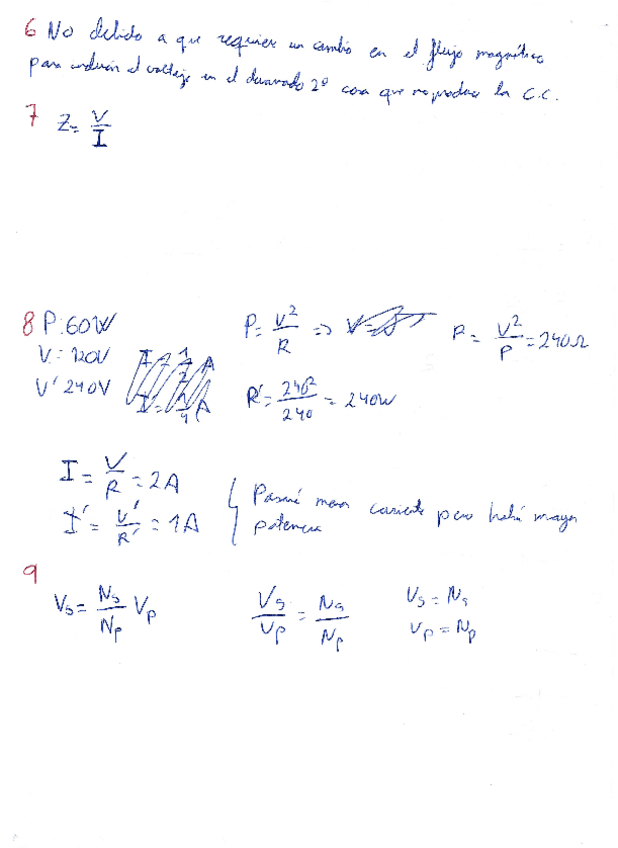 6 No debido a que requiere un cambio en el flujo magnético
para inducir el voltaje en el devanado 2º cosa que no produce la C.C.
7 Z = V/I
8 P: 60W P = V²/R => R = V²/P = 240Ω
V = 120V
V' 240V R' = 240²/240 = 240W
I = V/R = 2A
I' = V'/R' = 1A Pasará menor corriente pero habrá mayor
potencia
9
Vs = Ns/Np Vp Vs/Vp = Ns/Np Vs = Ns
Vp = Np